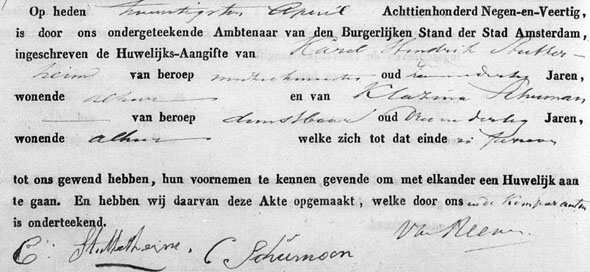 Op heden twintigsten April Achttienhonderd Negen-en-Veertig,
is door ons ondergeteekende Ambtenaar van den Burgerlijken Stand der Stad Amsterdam,
ingeschreven de Huwelijks-Aangifte van Karel Hendrik
van beroep oud Jaren,
wonende alhier en van Klazina Schuman
van beroep dienstbaar oud Jaren,
wonende alhier welke zich tot dat einde in persoon
tot ons gewend hebben, hun voornemen te kennen gevende om met elkander een Huwelijk aan
te gaan. En hebben wij daarvan deze Akte opgemaakt, welke door ons en de Komparanten
is onderteekend.
C Schumoon